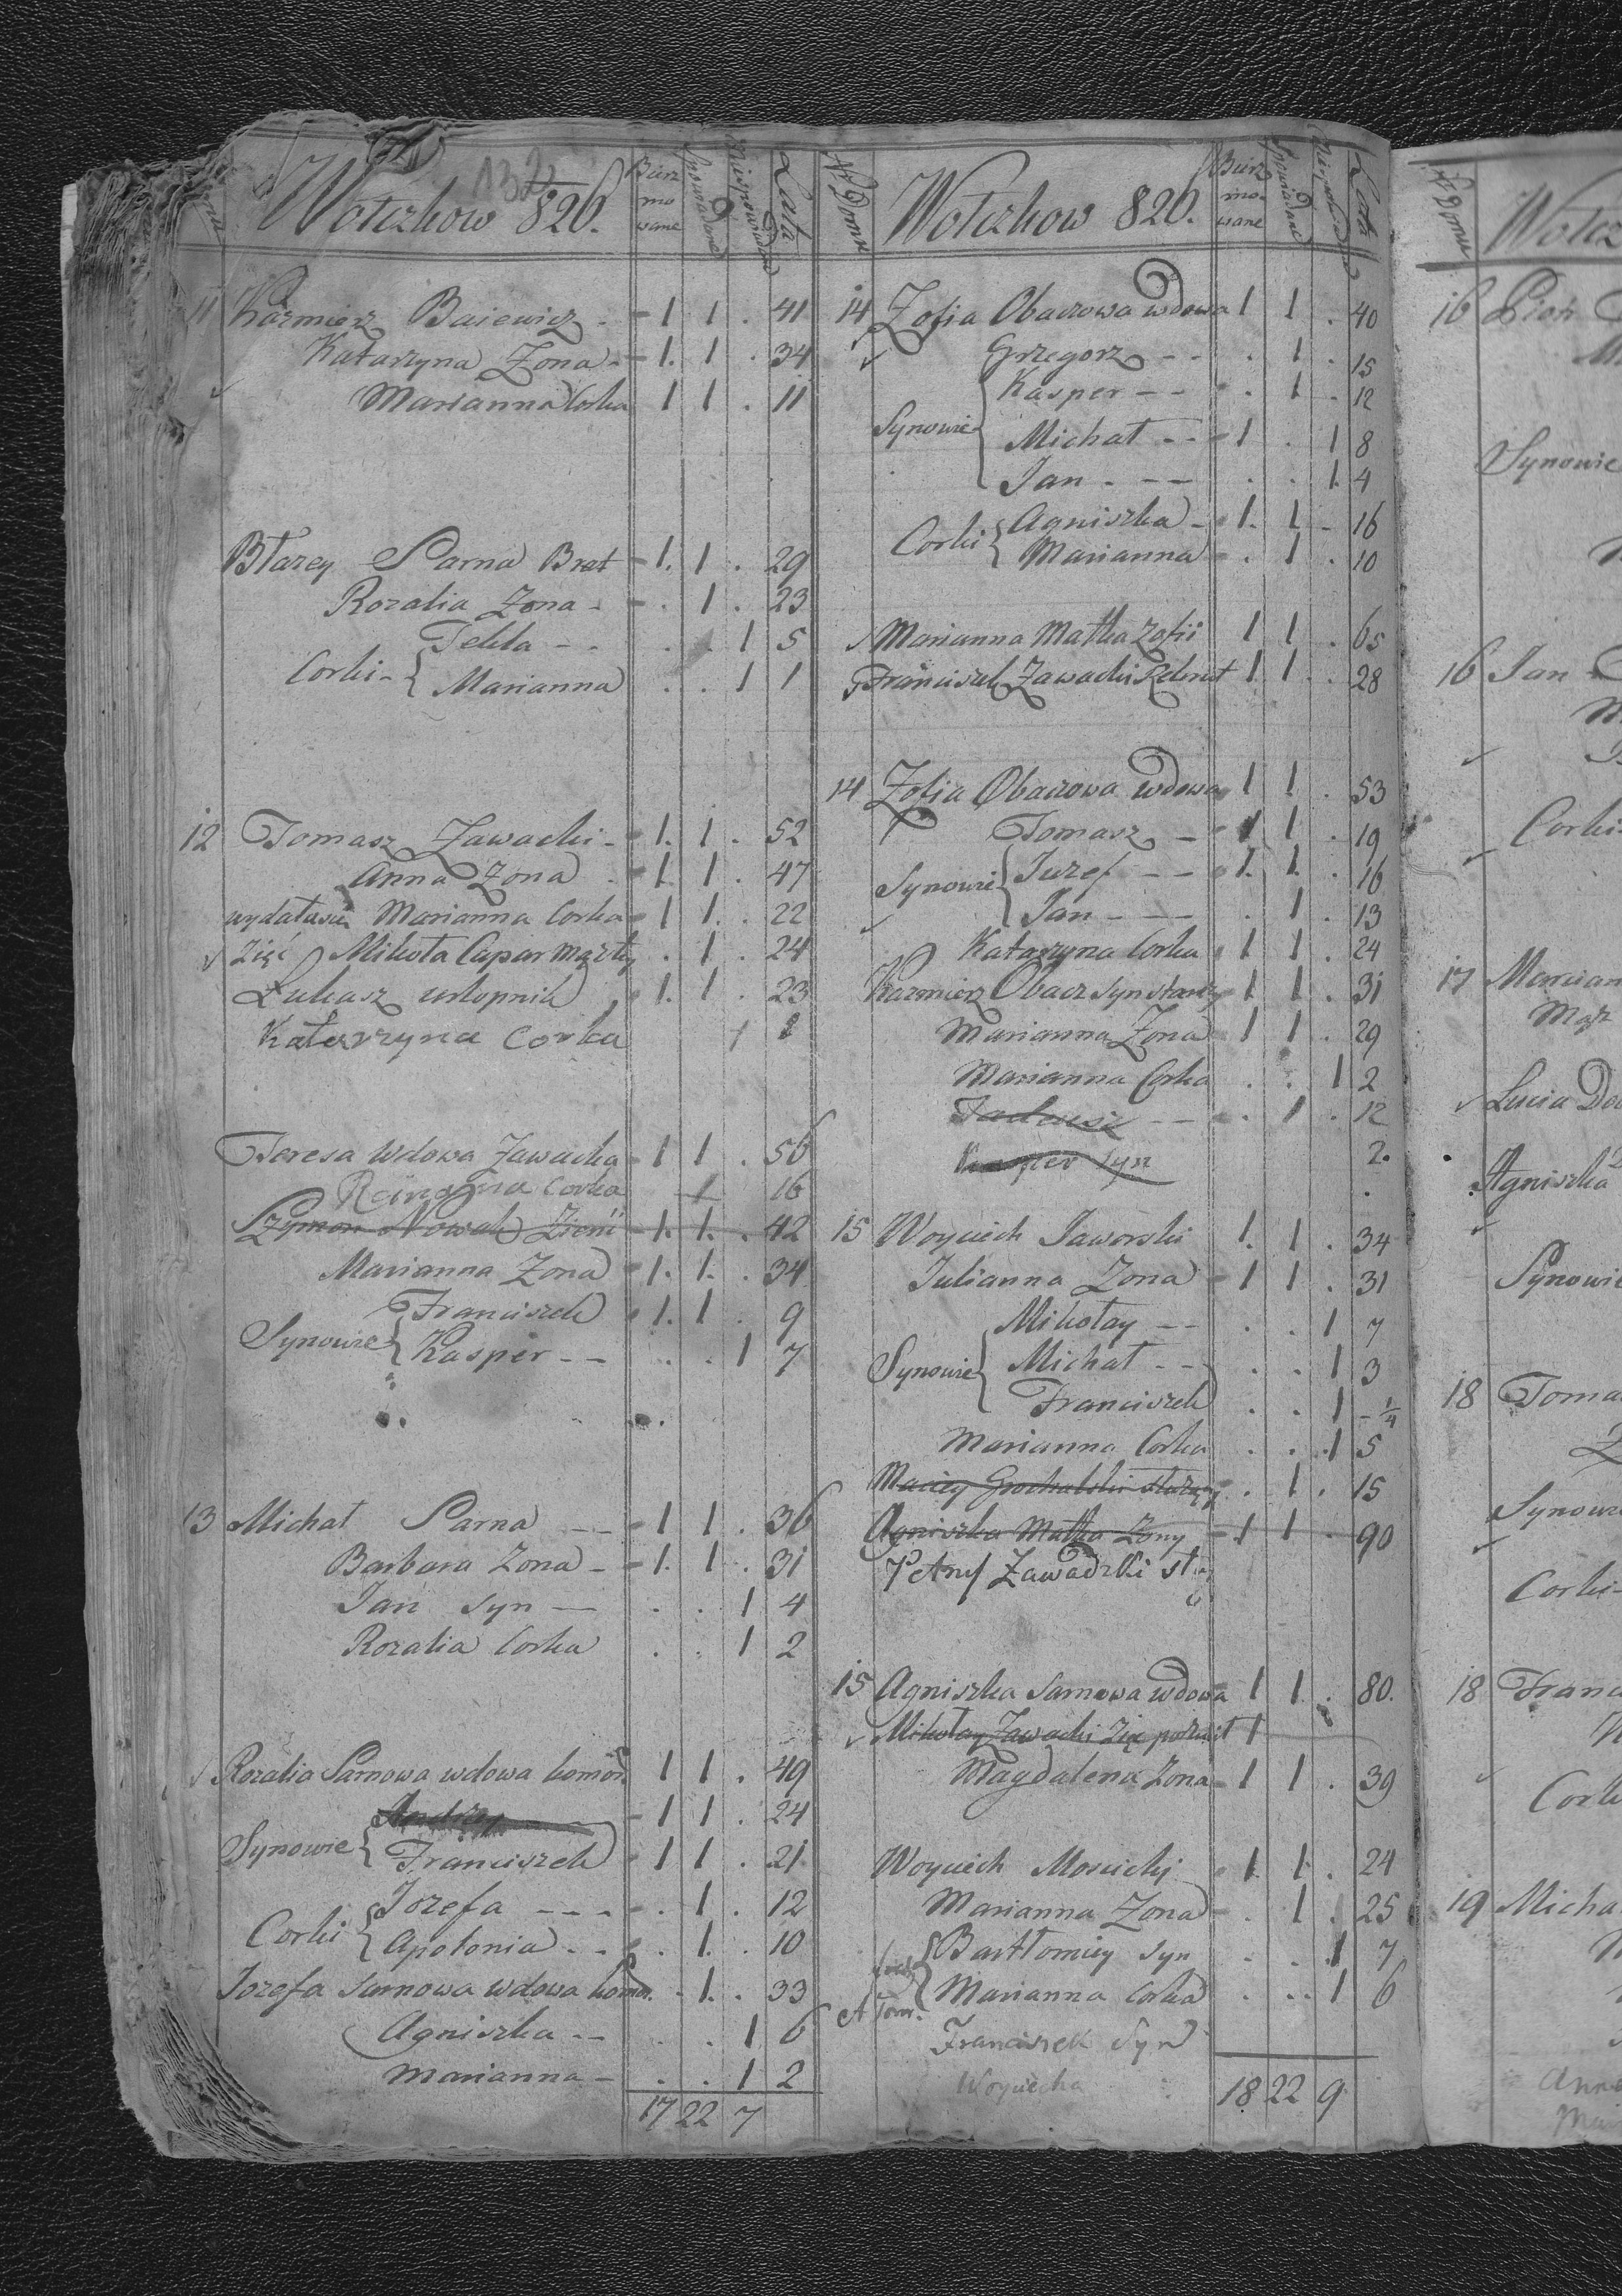 132
Wołczkow 826.
Bierz
mo
wane
Spowiadane
Niespowiadane
Lata
11 Kazmierz Baiewicz - 1 1 . 41
Katarzyna Zona - 1. 1 . 34
Marianna Corka 1 1 . 11
Błazey Sarna Brat - 1. 1 . 29
Rozalia Zona - . 1 . 23
Tekla - . . . 1 5
Corki { Marianna . . 1 1
12 Tomasz Zawacki - 1. 1 . 52
Anna Zona . 1. 1 . 47
wydałasie Marianna Corka 1 1. . 22
Zięć Mikoła Capar . 1 . 24
Łukasz urlopnik 1. 1 . 23
Katarzyna Corka 1 1
Teresa wdowa Zawacka 1 1 . 56
Corka 1 16
Szymon Nowak 1. 1. . 42
Marianna Zona - 1. 1. . 34
Franciszek 1. 1 . 9
Synowie { Kasper - - . . 1 7
13 Michał Sarna - - 1 1 . 36
Barbara Zona - 1. 1 . 31
Jan Syn - . . 1 4
Rozalia Corka . . 1 2
Rozalia Sarnowa wdowa komor. 1 1 . 49
Andrzey - 1 1 . 24
Synowie { Franciszek 1 1 . 21
Jozefa - - - - . 1 . 12
Corki { Apolonia . - . 1. . 10
Jozefa Sarnowa wdowa komor. . 1. . 33
Agniszka - - . . 1 6
Marianna - . . 1 2
17 22 7
Nr Domu
Wołczkow 820.
Bierz
mo-
wane
Spowiadane
Lata
14 Zofia Obaczowa wdowa 1 1 . 40
Grzegorz - - . 1 . 15
Kasper - - . 1 . 12
Synowie { Michał - - 1 . 1 8
Jan - - - . . 1. 4
Agniszka - 1. 1 - 16
Corki { Marianna . 1 . 10
Marianna Matka Zofii 1 1 . 65
Franciszek Zawacki Rekrut 1 1 . 28
14 Zofia Obaczowa wdowa 1 1 . 53
Tomasz - 1 1 . 19
Synowie { Juzef - - 1. 1. . 16
Jan - - - . 1 . 13
Katarzyna Corka 1 1 . 24
Kazmierz Obacz Syn starszy 1 1 . 31
Marianna Zona 1 1 . 29
Marianna Corka . . 1 2
Tadeusz - - . 1 . 12
Kasper Syn 2.
15 Woyciech Jaworski 1. 1 . 34
Julianna Zona 1 1 . 31
Mikołay - - . . 1 7
Synowie { Michał - - . . 1 3
Franciszek . . 1 - 1/4
Marianna Corka . . 1 5
Maciey Grochalski służący . 1 . 15
Agniszka Matka Zony - 1 1 . 90
Zawadzki
15 Agniszka Sarnowa wdowa 1 1 . 80.
Mikołay Zawacki Zię 1
Magdalena Zona - 1 1 . 39
Woyciech Moscicki 1. 1. . 24
Marianna Zona - . 1 . 25
Bartłomiey Syn . . 1 7
Marianna Corka . . 1 6
Franciszek Syn
Woyciecha
18 22 9
Nr Domu
16
Synowie
16 Jan
Corki
17 Marian
Mąz
Lucia
Agniszka
Synowie
18 Toma
Synowie
Corki
18 Franc
Corki
19 Micha